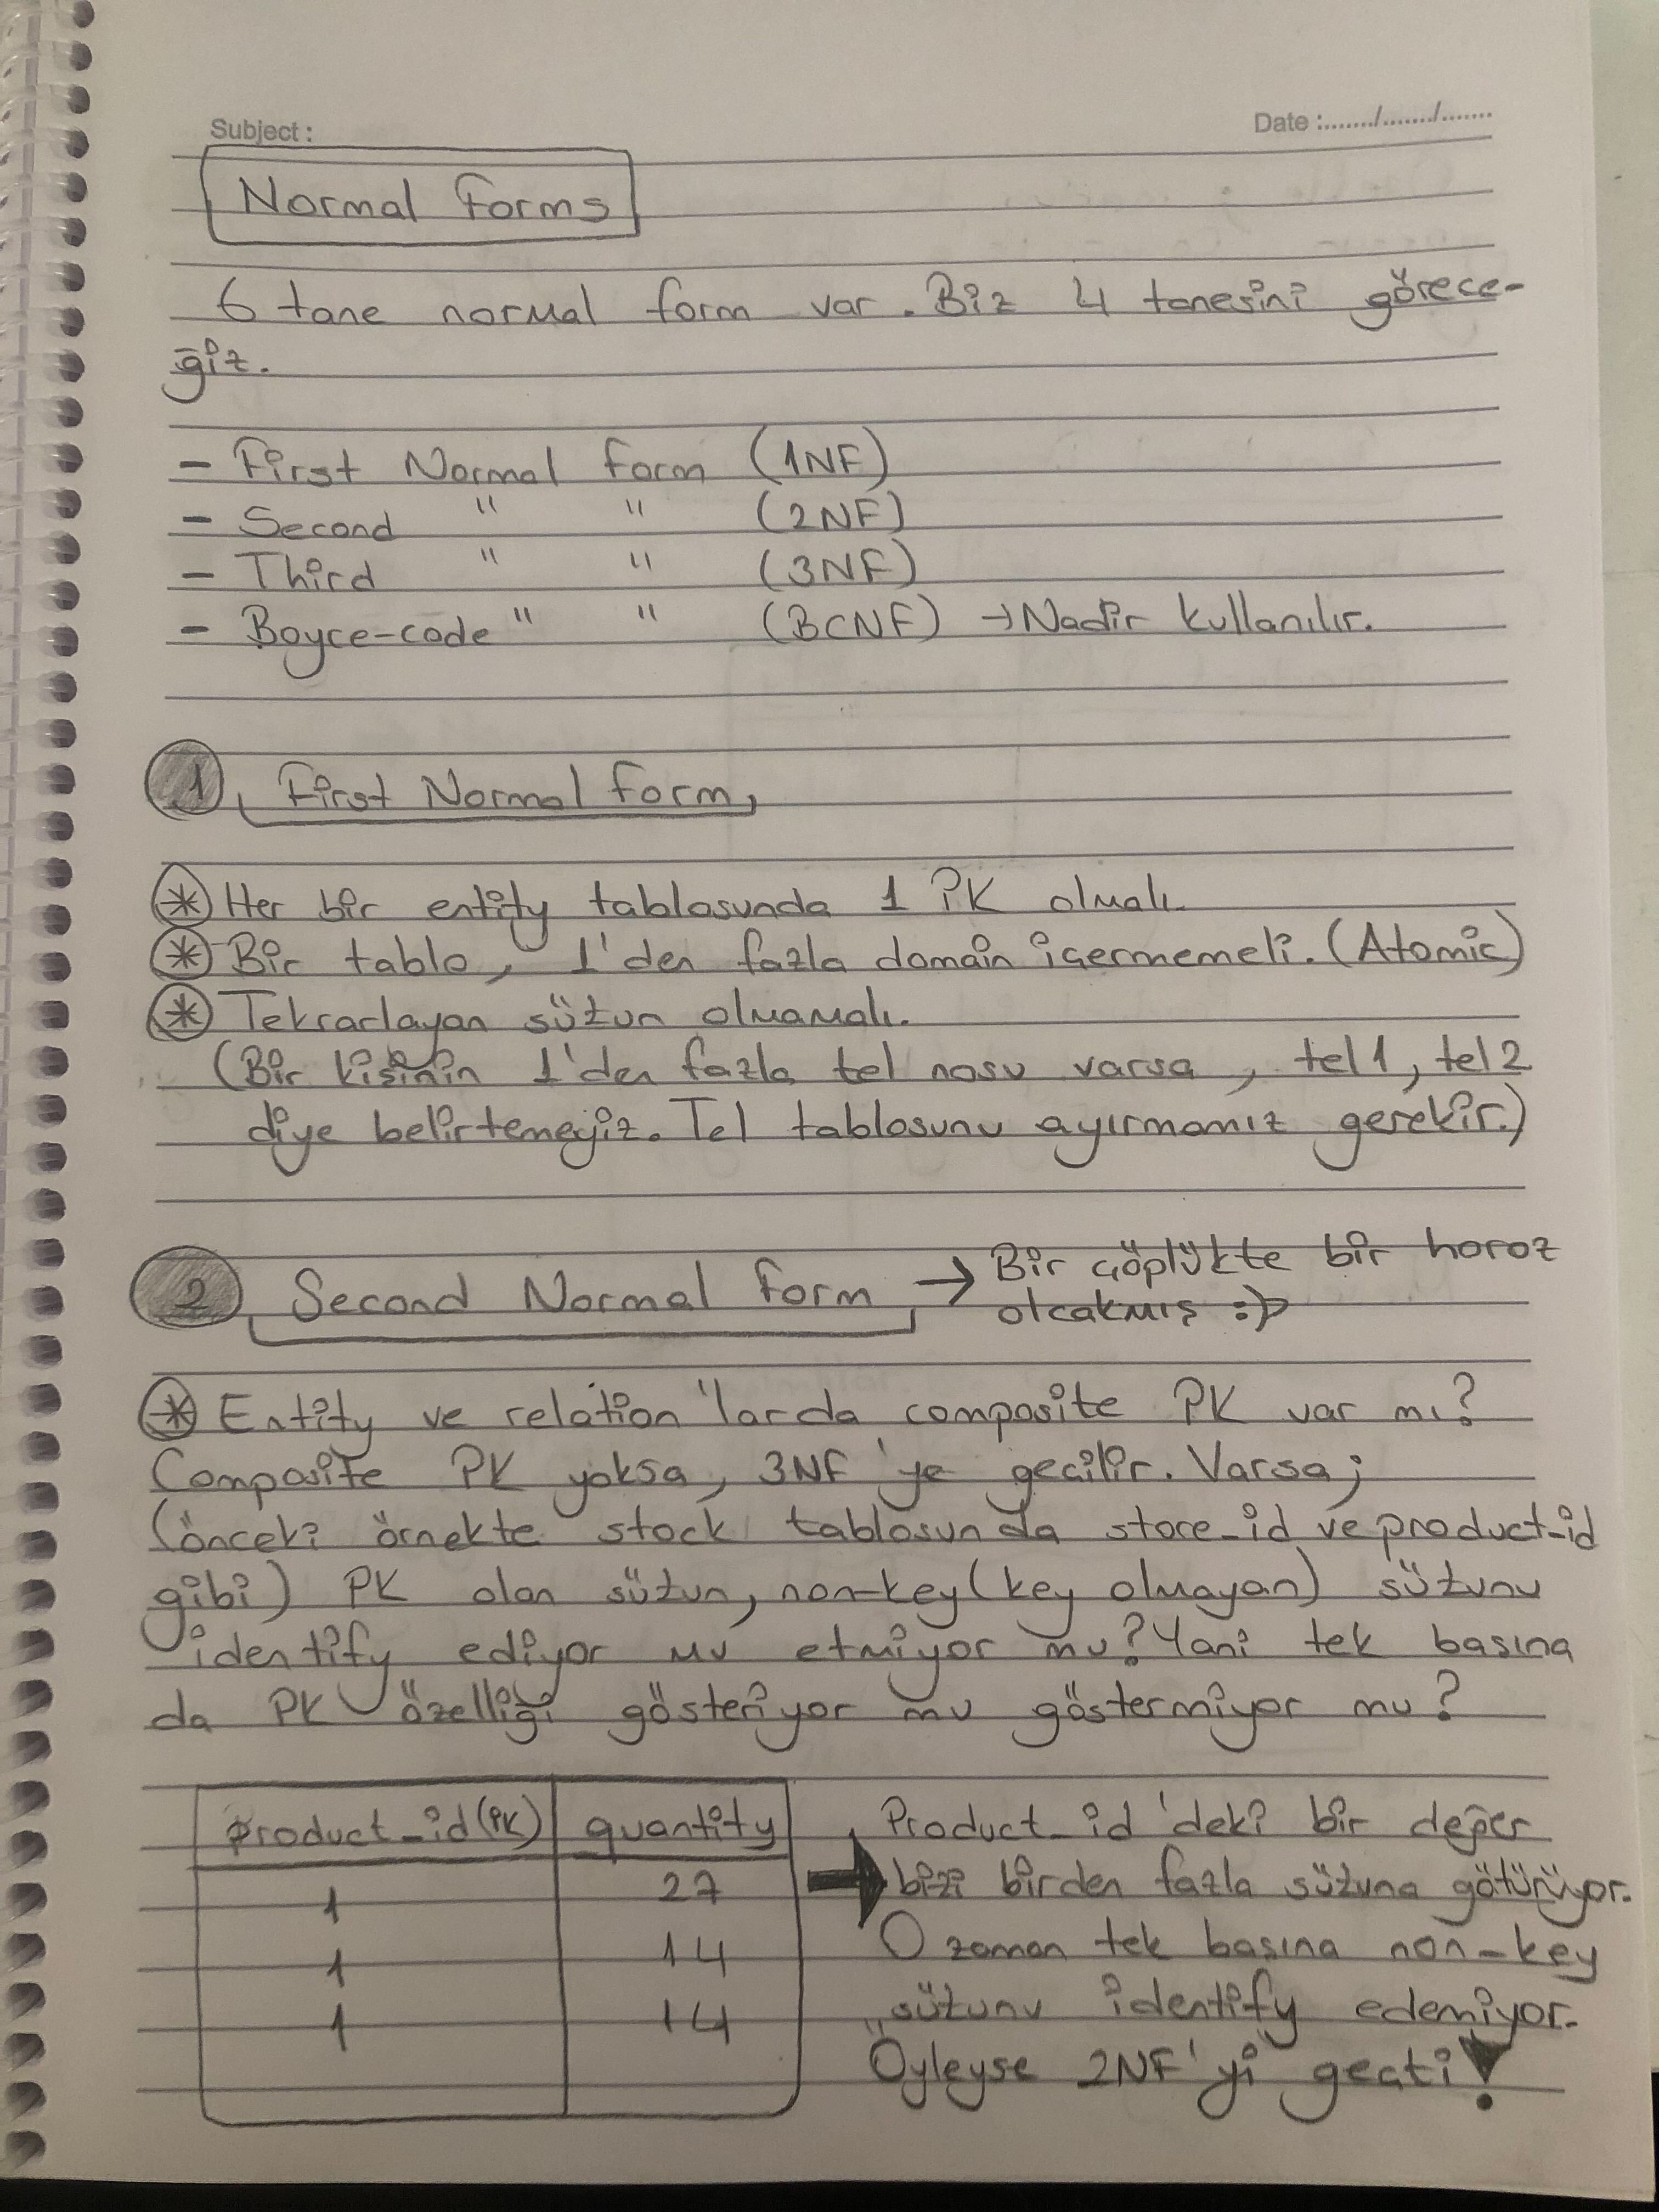 Subject :
Date :......../......./.......
Normal Forms
6 tane normal form var. Biz 4 tanesini görece-
ğiz.
- First Normal Form (1NF)
- Second " " (2NF)
- Third " " (3NF)
- Boyce-code " " (BCNF) → Nadir kullanılır.
1 First Normal Form
* Her bir entity tablosunda 1 PK olmalı.
* Bir tablo, 1'den fazla domain içermemeli. (Atomic)
* Tekrarlayan sütun olmamalı.
(Bir kişinin 1'den fazla tel nosu varsa, tel1, tel2
diye belirtemeyiz. Tel tablosunu ayırmamız gerekir.)
2 Second Normal Form → Bir çöplükte bir horoz
olcakmış :)
* Entity ve relation'larda composite PK var mı?
Composite PK yoksa, 3NF'ye geçilir. Varsa;
(önceki örnekte stock tablosunda store_id ve product_id
gibi) PK olan sütun, non-key (key olmayan) sütunu
identify ediyor mu etmiyor mu? Yani tek başına
da PK özelliği gösteriyor mu göstermiyor mu?
product_id (PK) quantity
1 27
1 14
1 14
→ Product_id'deki bir değer
bizi birden fazla sütuna götürüyor.
O zaman tek başına non-key
sütunu identify edemiyor.
Öyleyse 2NF'yi geçti!